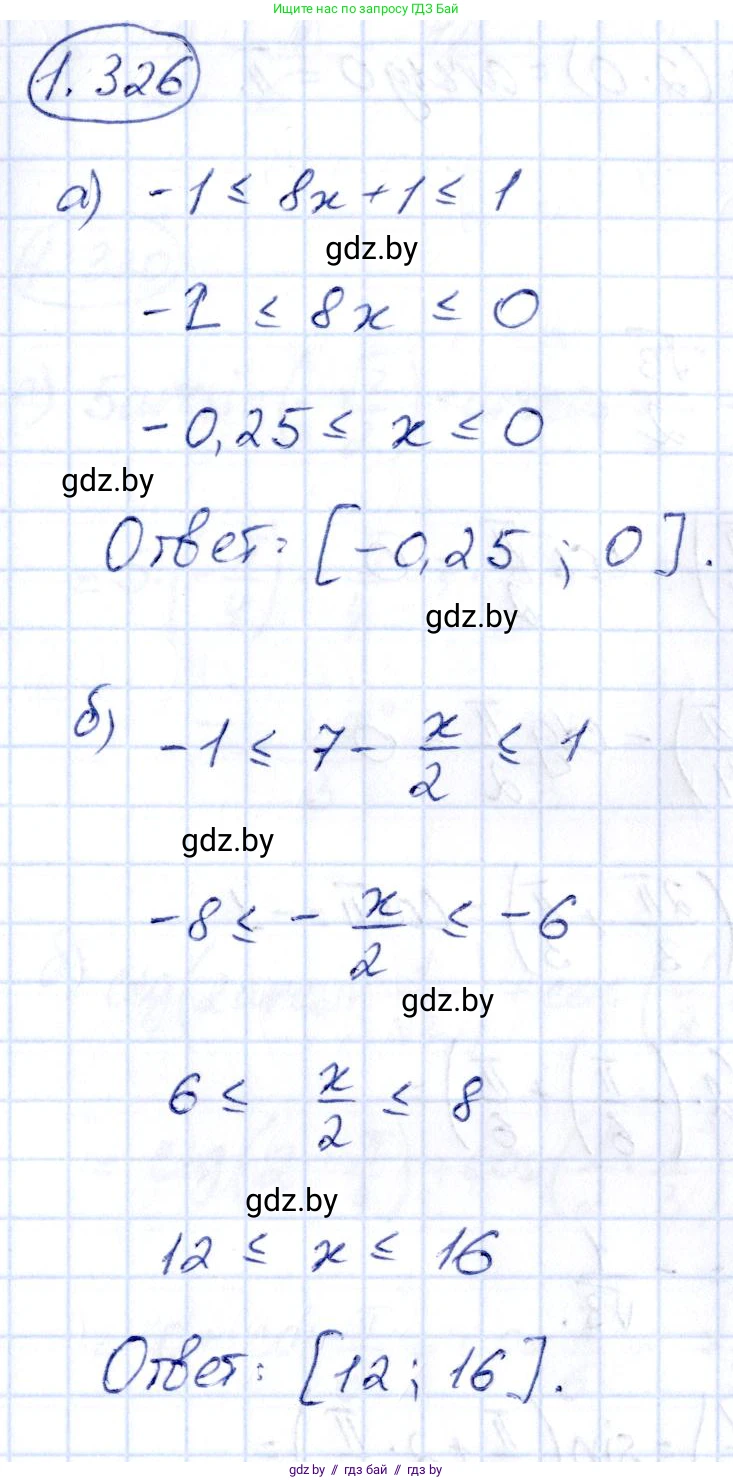 Ищите нас по запросу ГДЗ Бай
1.326
а) -1 ≤ 8x + 1 ≤ 1
gdz.by
-2 ≤ 8x ≤ 0
-0,25 ≤ x ≤ 0
gdz.by
Ответ: [-0,25 ; 0].
gdz.by
б) -1 ≤ 7 - x/2 ≤ 1
gdz.by
-8 ≤ - x/2 ≤ -6
gdz.by
6 ≤ x/2 ≤ 8
gdz.by
12 ≤ x ≤ 16
Ответ: [12 ; 16].
gdz.by // гдз бай // гдз by